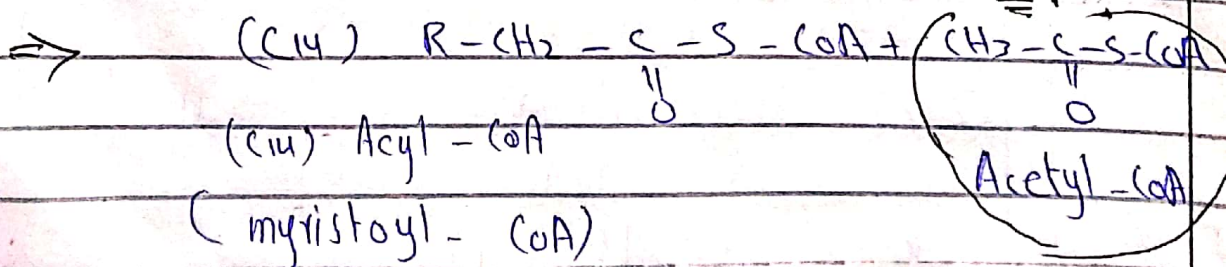 ⇒ (C14) R-CH2-C-S-COA + CH3-C-S-COA
|| ||
O O
(C14) Acyl-COA
Acetyl-COA
(myristoyl-COA)